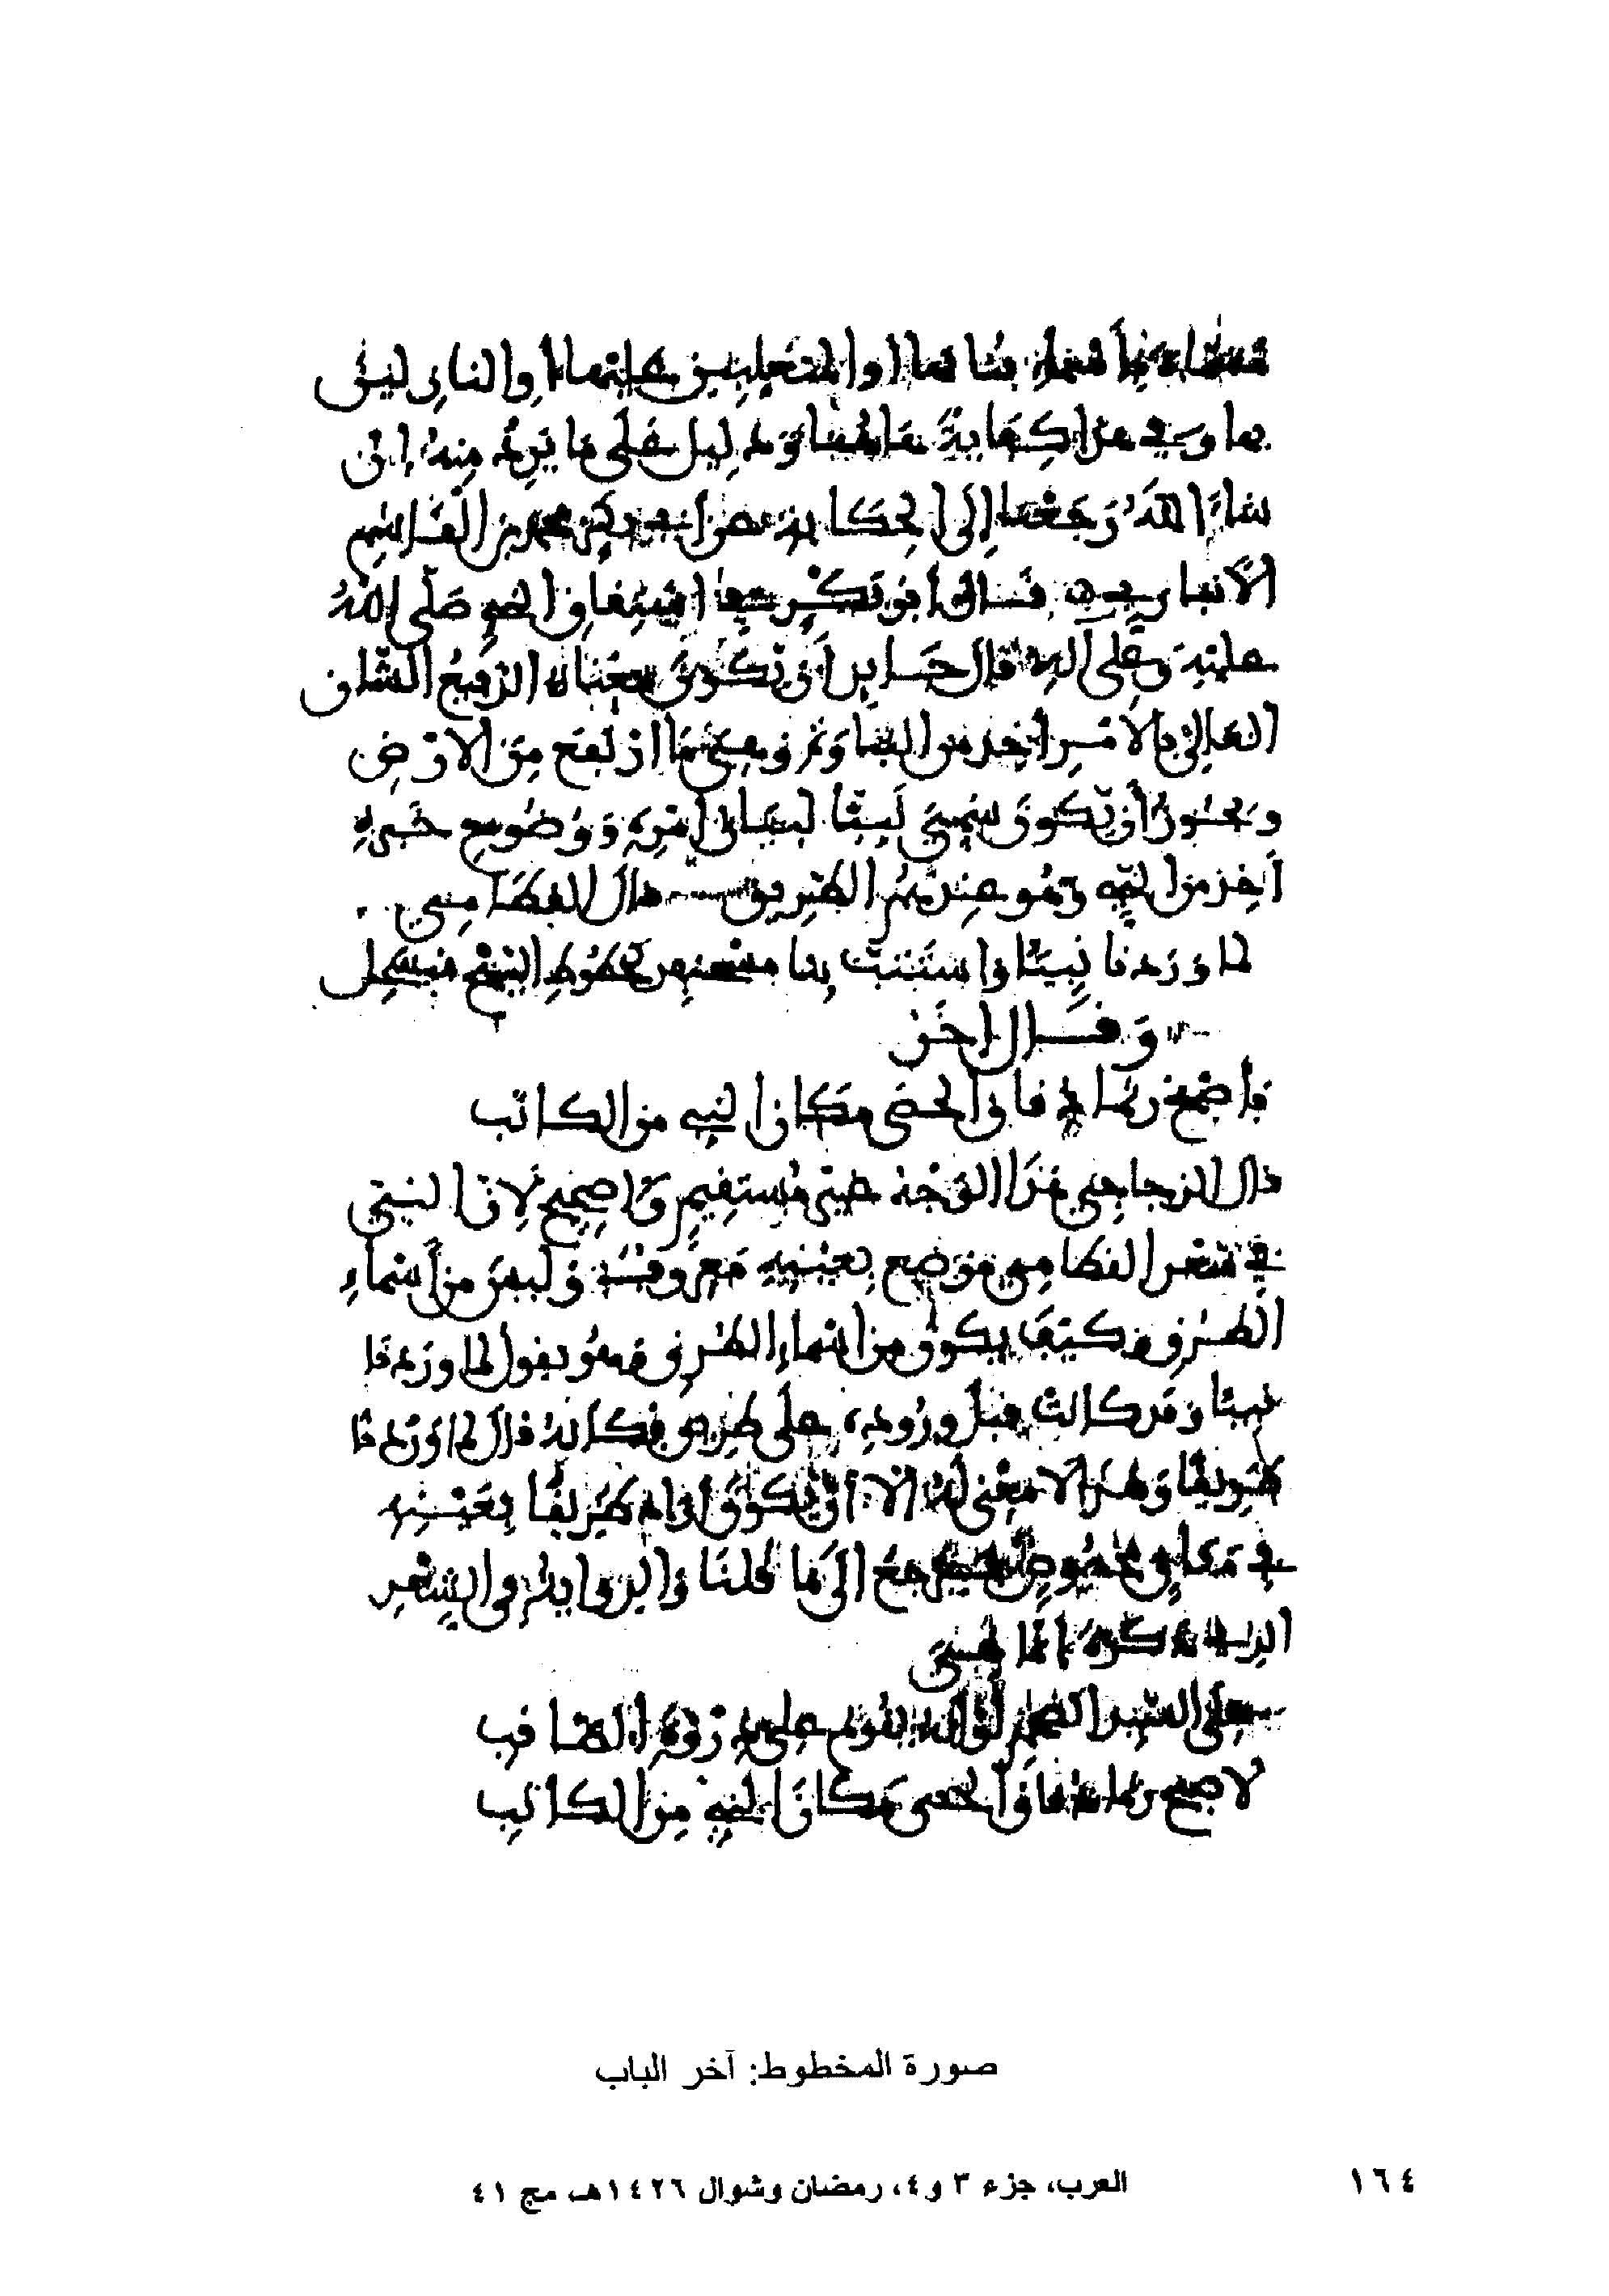 بها وفي هذا كفاية هاهنا ودليل على ما يرد منه إن
شاء الله رجعنا إلى الحكاية عن أبي بكر محمد بن القاسم
الأنباري قال أبو بكر اشتقاق النبي صلى الله
عليه وعلى آله قال جايز أن يكون معناه الرفيع الشان
العالي الأمر أخذ من النباوة وهي ما ارتفع من الأرض
ويجوز أن يكون سمي نبيا لبيان أمره ووضوح خبره
أخذ من النبي وهو عندهم الطريق قال القطامي
لما وردنا نبيا واستتب بنا مسحنفر كخطوط النسج منسحل
وقال آخر
فأصبح رتما دقاق الحصى مكان النبي من الكاثب
قال الزجاجي هذا الوجه غير مستقيم واضح لأن النبي
في شعر القطامي موضع بعينه معروف وليس من أسماء
الطرق وكيف يكون من أسماء الطرق وهو يقول لما وردنا
نبيا وقد كانت قبل وروده على طريق فكأنه قال لما وردنا
طريقا وهذا لا معنى له إلا أن يكون أراد طريقا بعينه
في مكان مخصوص فيرجع إلى ما قلنا والرواية في الشعر
الذي ذكره إنما هي
على السيد الصعب لو أنه يقوم على ذروة الصاقب
لأصبح رتما دقاق الحصى مكان النبي من الكاثب
صورة المخطوط: آخر الباب
العرب، جزء ٣ و٤، رمضان وشوال ١٤٢٦هـ، مج ٤١
١٦٤